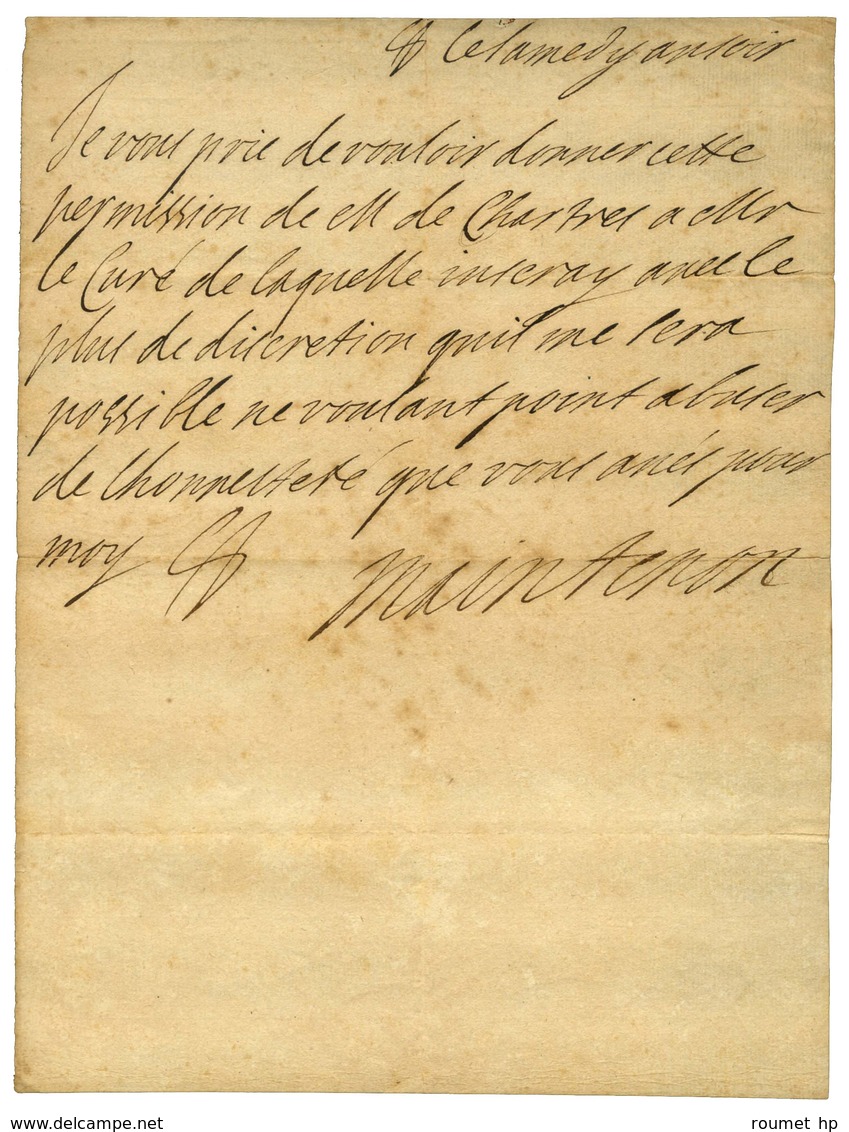 ce samedy au soir
Je vous prie de vouloir donner cette
permission de M de Chartres a Mr
le Curé de laquelle useray avec le
plus de discretion quil me sera
possible ne voulant point abuser
de lhonnesteté que vous avés pour
moy Maintenon
www.delcampe.net
roumet hp